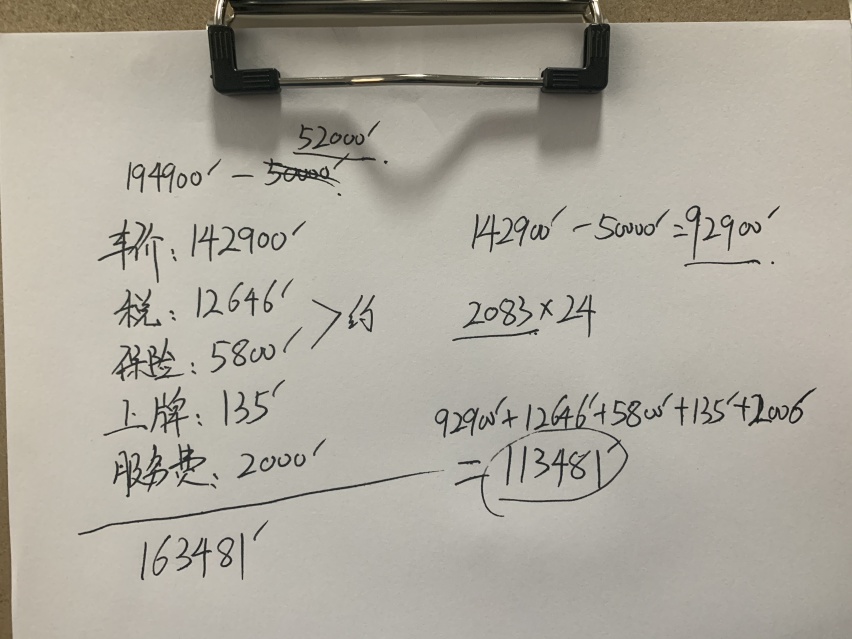 52000'
194900' - 50000'
车价: 142900'
税: 12646'
保险: 5800'
> 约
上牌: 135'
服务费: 2000'
163481'
142900' - 50000' = 92900'
2083 × 24
92900' + 12646' + 5800' + 135' + 2000'
= 113481'